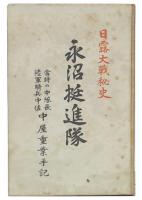 日露大戦秘史
永沼挺進隊
當時の中隊長
陸軍騎兵中佐
中屋重業手記